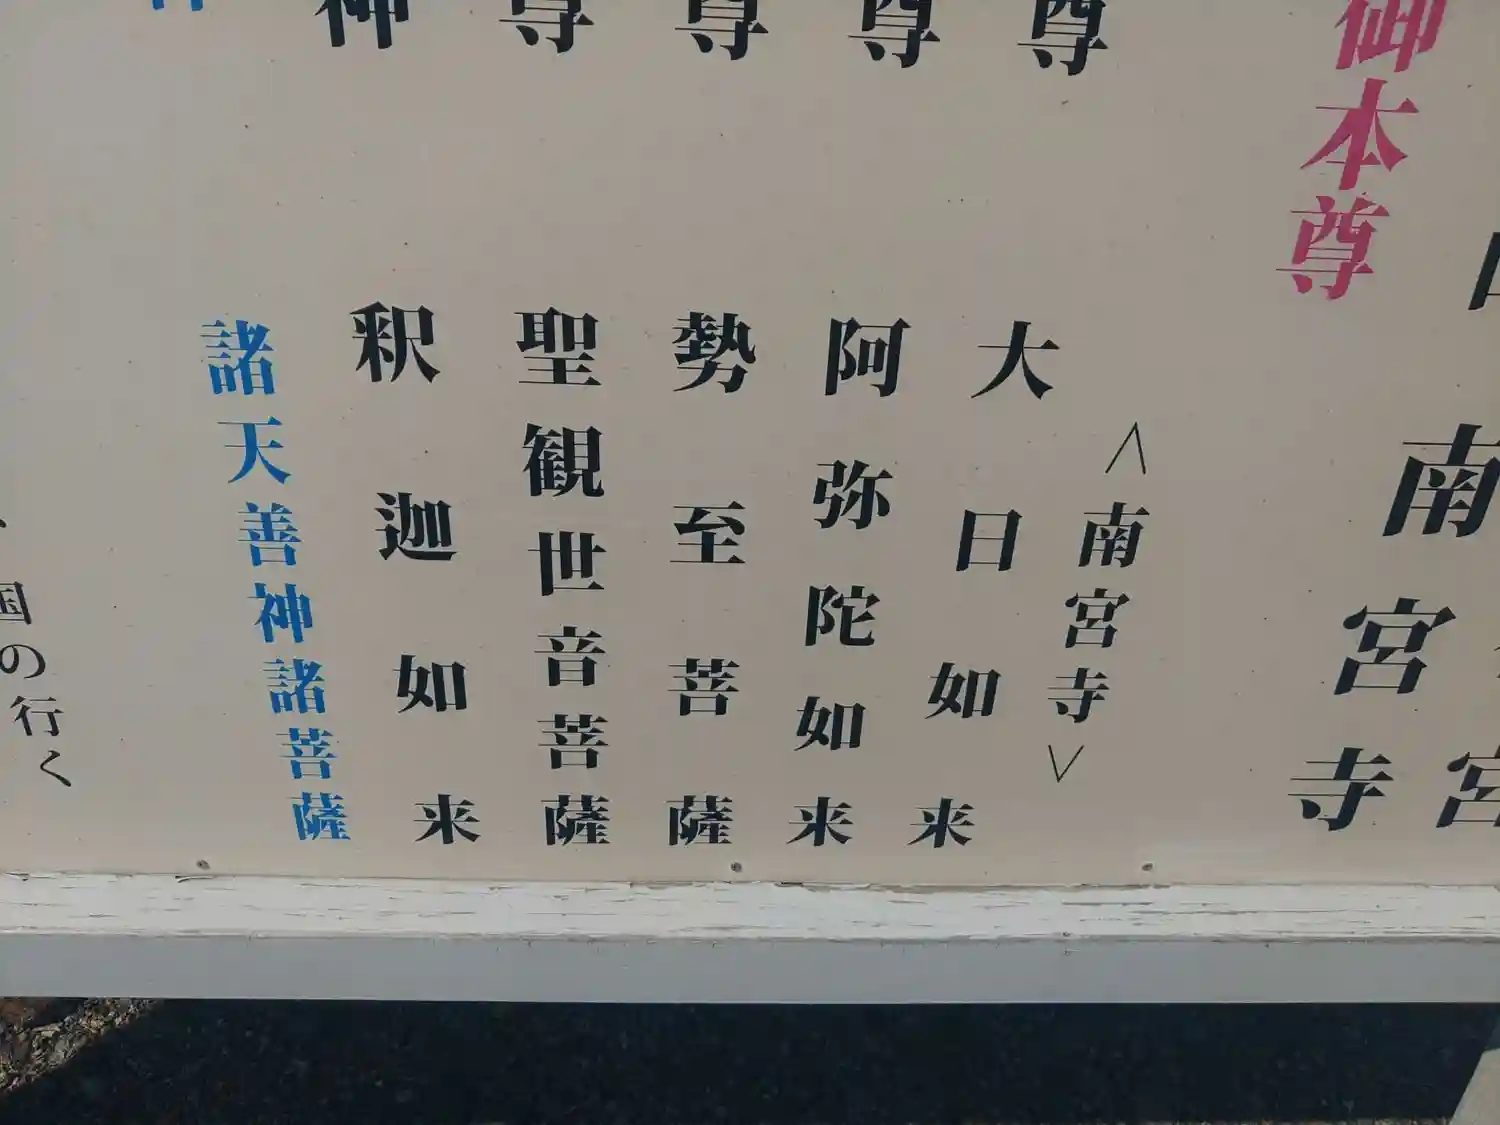 南宮寺
御本尊
<南宮寺>
大日如来
阿弥陀如来
勢至菩薩
聖観世音菩薩
釈迦如来
諸天善神諸菩薩
尊
尊
尊
尊
神
国の行く